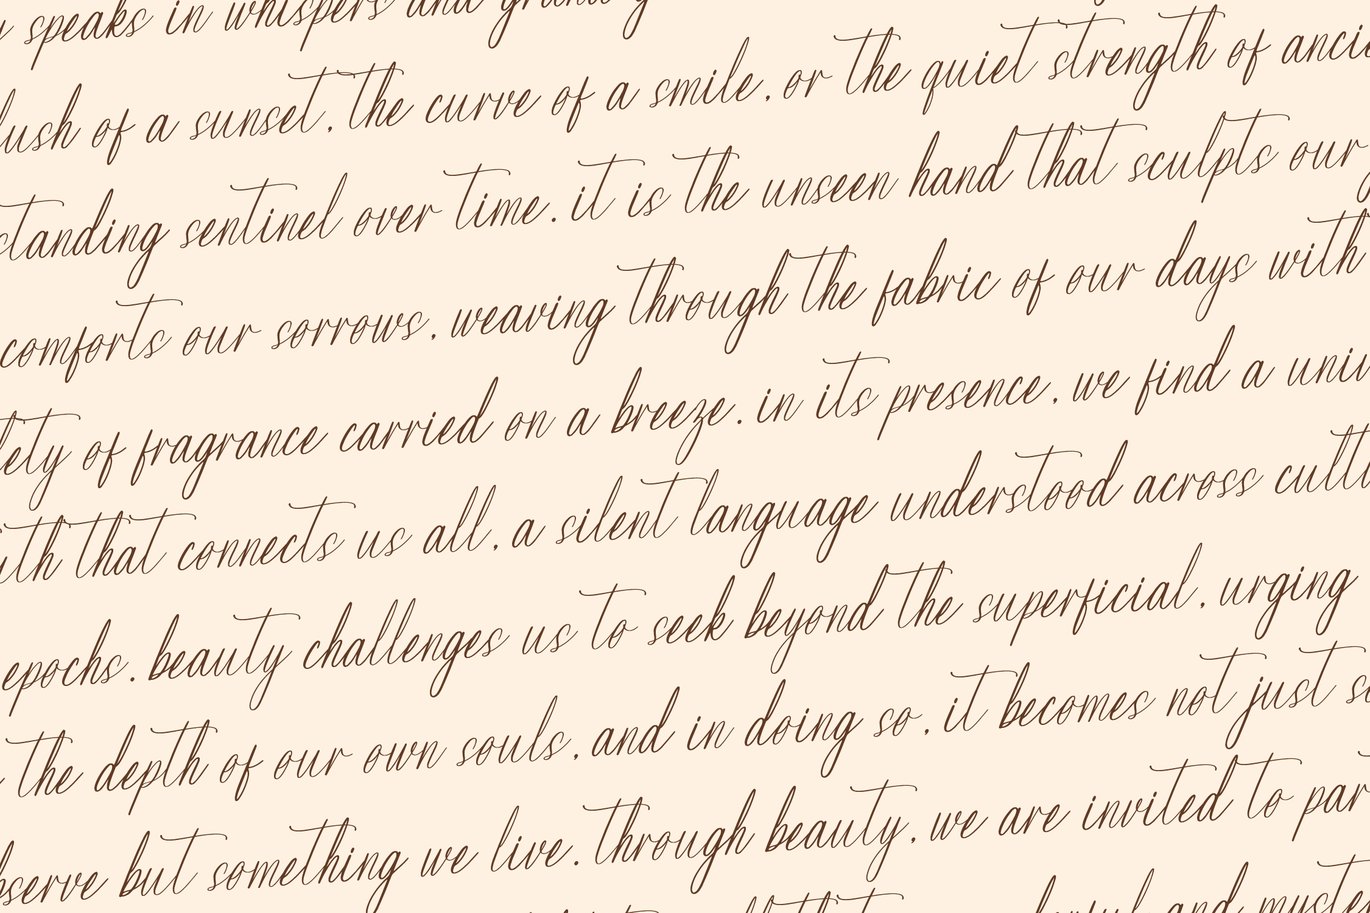 speaks in whispers and grand g
lush of a sunset, the curve of a smile, or the quiet strength of ancie
standing sentinel over time. it is the unseen hand that sculpts our
comforts our sorrows, weaving through the fabric of our days with
lety of fragrance carried on a breeze. in its presence, we find a univ
uth that connects us all, a silent language understood across cultu
epochs. beauty challenges us to seek beyond the superficial, urging
the depth of our own souls, and in doing so, it becomes not just so
bserve but something we live. through beauty, we are invited to par